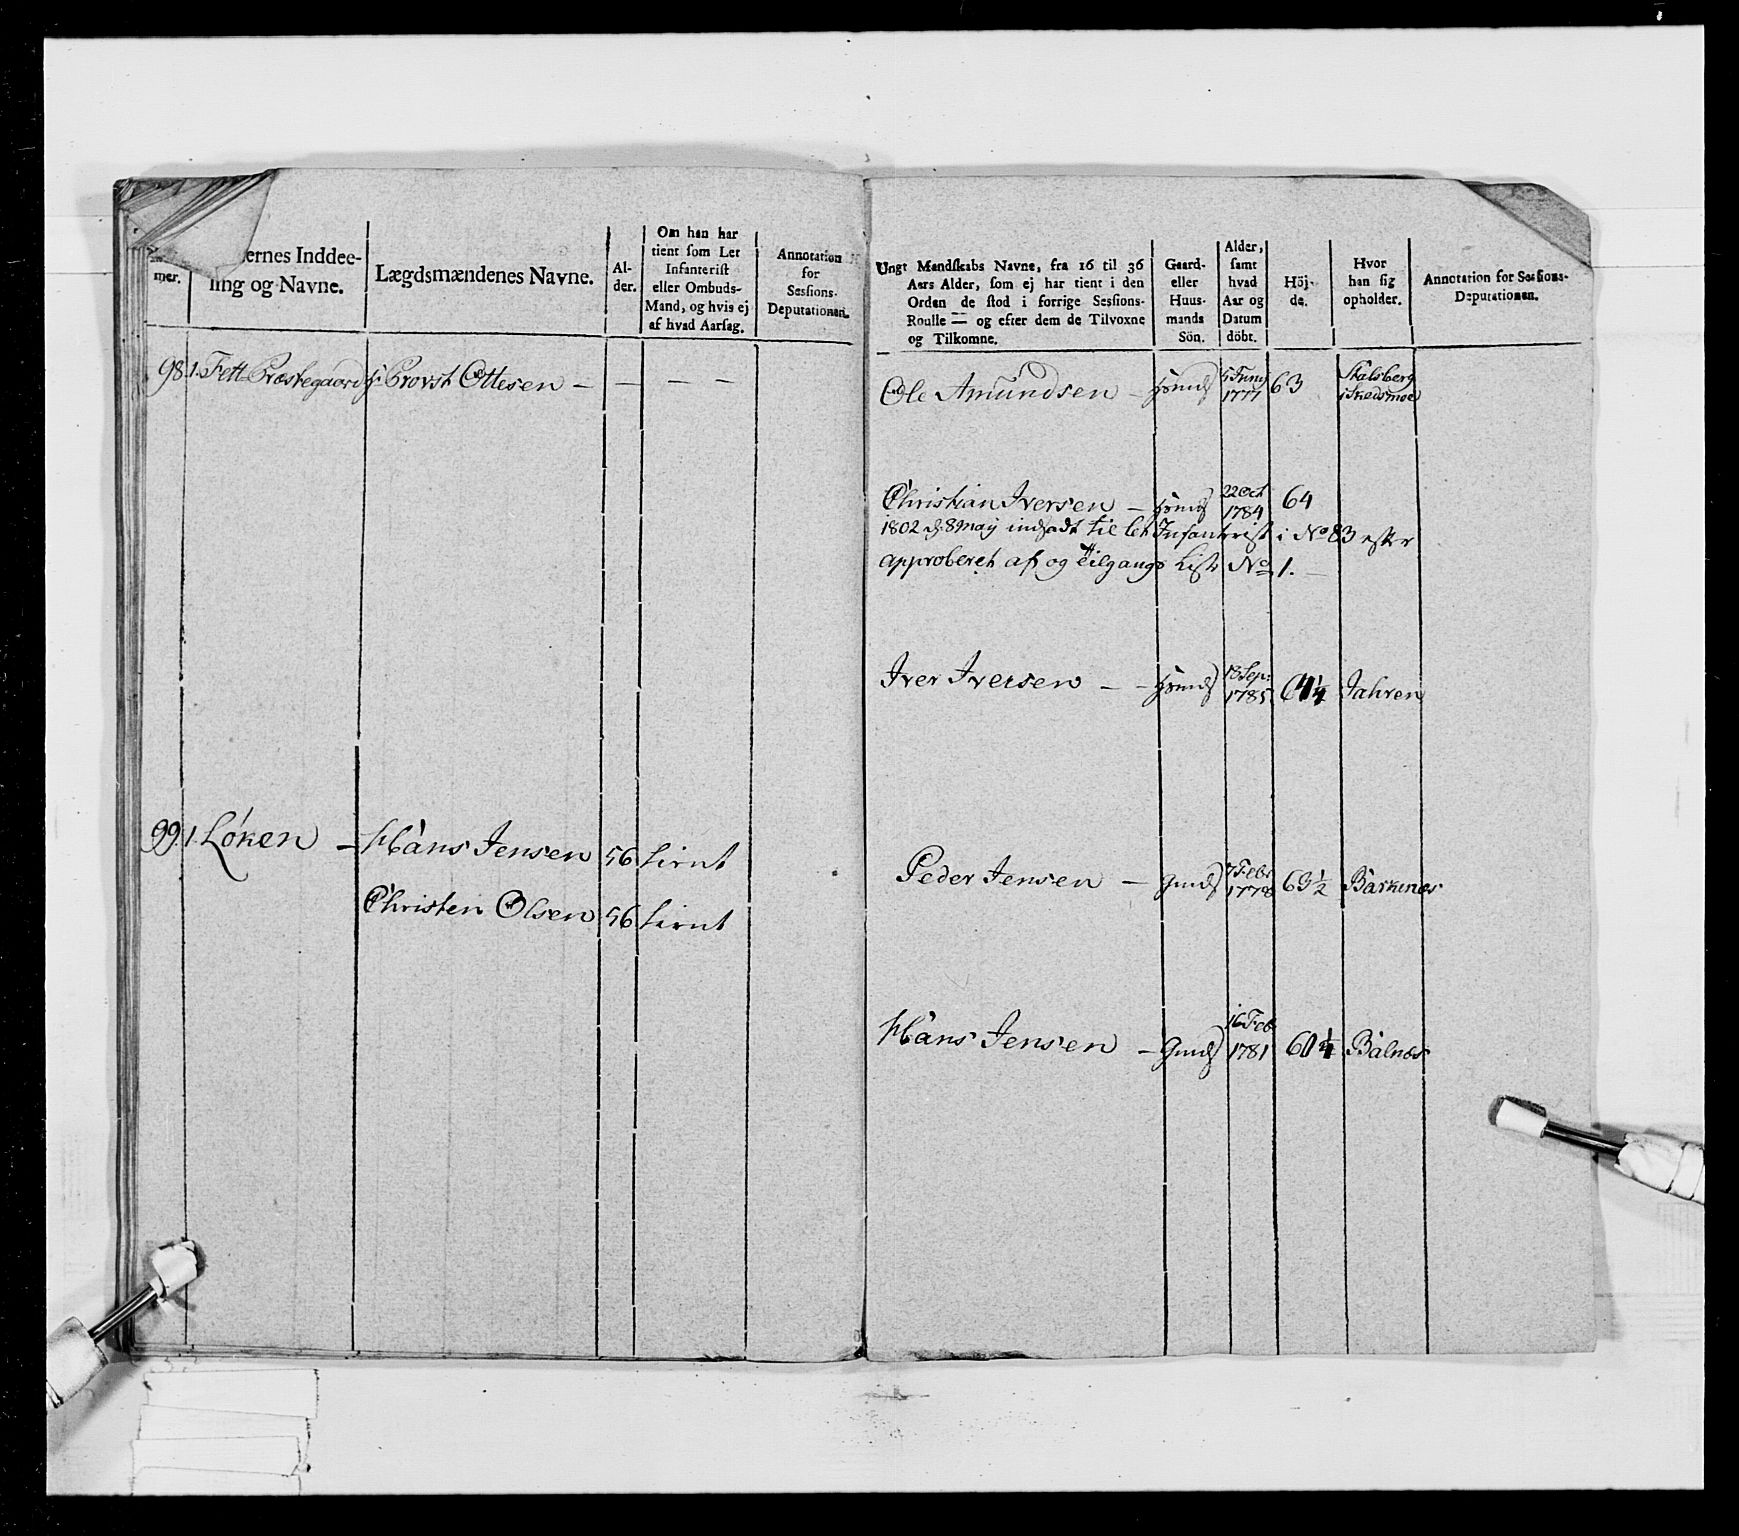 mer.
ernes Inddee-
ling og Navne.
Lægdsmændenes Navne.
Al-
der.
Om han har
tient som Let
Infanterist
eller Ombuds-
Mand, og hvis ej
af hvad Aarsag.
Annotation
for
Sessions-
Deputationen.
98. 1. Fett Præstegaard Hr. Provst Ottesen — — — —
99. 1. Løken — Hans Jensen 56 tient
Christen Olsen 56 tient
Ungt Mandskabs Navne, fra 16 til 36
Aars Alder, som ej har tient i den
Orden de stod i forrige Sessions-
Roulle — og efter dem de Tilvoxne
og Tilkomne.
Gaard-
eller
Huus-
mands
Sön.
Alder,
samt
hvad
Aar og
Datum
döbt.
Höj-
de.
Hvor
han sig
opholder.
Annotation for Sessions-
Deputationen.
Ole Amundsen — 5 Junij 1777 63 Skalsberg i Skedsmoe
Christian Iversen — 22 Oct 1784 64
1802 d. 8 Maij indsadt til let Infanterist i No 83 efter
approberet af og Tilgangs Liste No 1. —
Iver Iversen — — 18 Sep: 1785 61 1/4 Jahren
Peder Jensen — 7 Febr 1778 63 1/2 Barkenæs
Hans Jensen — 16 Feb 1781 60 1/4 Balnæs